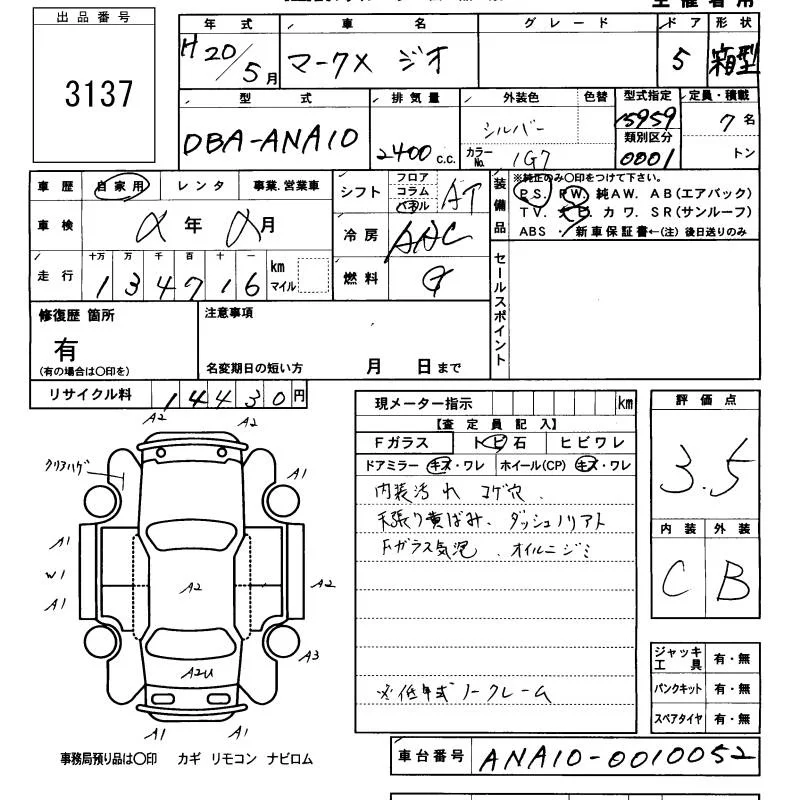 出品番号
3137
年式 車名 グレード ドア 形状
H20/5月 マークX ジオ 5 箱型
型式 排気量 外装色 色替 型式指定 定員・積載
DBA-ANA10 2400c.c. シルバー 15959 7名
カラーNo. 1G7 類別区分 0001 トン
車歴 自家用 レンタ 事業.営業車
シフト フロア コラム パネル AT
装備品 ※純正のみ〇印をつけて下さい。
P.S. P.W. 純AW. AB(エアバック)
TV. ナビ カワ. SR(サンルーフ)
ABS ・ 新車保証書←(注) 後日送りのみ
車検 年 月
冷房 AAC
走行 十万 万 千 百 十 一 km マイル
1 3 4 7 1 6
燃料 G
セールスポイント
修復歴 箇所
有
(有の場合は〇印を)
注意事項
名変期日の短い方 月 日まで
リサイクル料 14430円
現メーター指示 km
【査定員記入】
Fガラス トビ石 ヒビワレ
ドアミラー キズ・ワレ ホイール(CP) キズ・ワレ
内装汚れ コゲ穴.
天張り黄ばみ. ダッシュノリアト
Fガラス気泡 . オイルニジミ
※低年式ノークレーム
評価点
3.5
内装 外装
C B
ジャッキ工具 有・無
パンクキット 有・無
スペアタイヤ 有・無
車台番号 ANA10-0010052
A2 A2
クリアハゲ A1
A1
W1 A2 A2
A1
A3
A2U
A1 A1
事務局預り品は〇印 カギ リモコン ナビロム